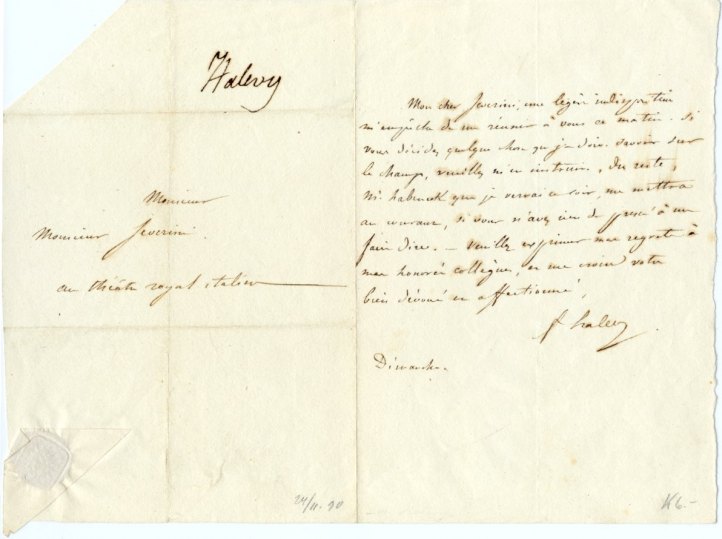 Halevy
Monsieur
Monsieur Severini.
au théâtre royal italien
24/11.90
Mon cher Severini, une légère indisposition
m'empêche de me réunir à vous ce matin. Si
vous décidez quelque chose que je doive savoir sur
le champ, veuillez m'en instruire. Du reste,
Mr. habeneck que je verrai ce soir, me mettra
au courant, si vous n'avez rien de pressé à me
faire dire. — Veuillez exprimer mes regrets à
mes honorés collègues, et me croire votre
bien dévoué et affectionné,
f halevy
Dimanche.